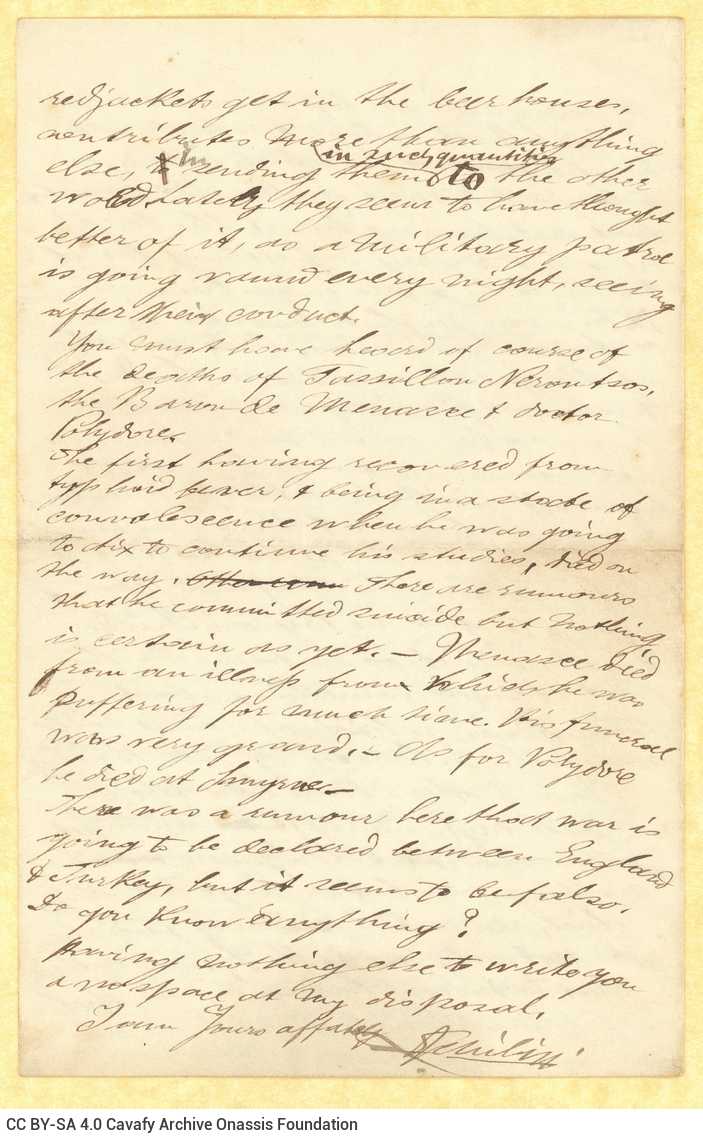 redjackets get in the beer houses,
contributes more than anything
in such quantities
else, in sending them to the other
world. Lately they seem to have thought
better of it, as a military patrol
is going round every night, seeing
after their conduct.
You must have heard of course of
the deaths of Tassillon Neroutsos,
the Baron de Menasce & doctor
Polydore.
The first having recovered from
typhoid fever, & being in a state of
convalescence when he was going
to Aix to continue his studies, died on
the way. There are rumours
that he committed suicide but nothing
is certain as yet. — Menasce died
from an illness from which he was
suffering for much time. His funeral
was very grand. — As for Polydore
he died at Smyrne. —
There was a rumour here that war is
going to be declared between England
& Turkey, but it seems to be falso.
Do you know anything?
Having nothing else to write you
& no space at my disposal.
I am Yours affately
CC BY-SA 4.0 Cavafy Archive Onassis Foundation